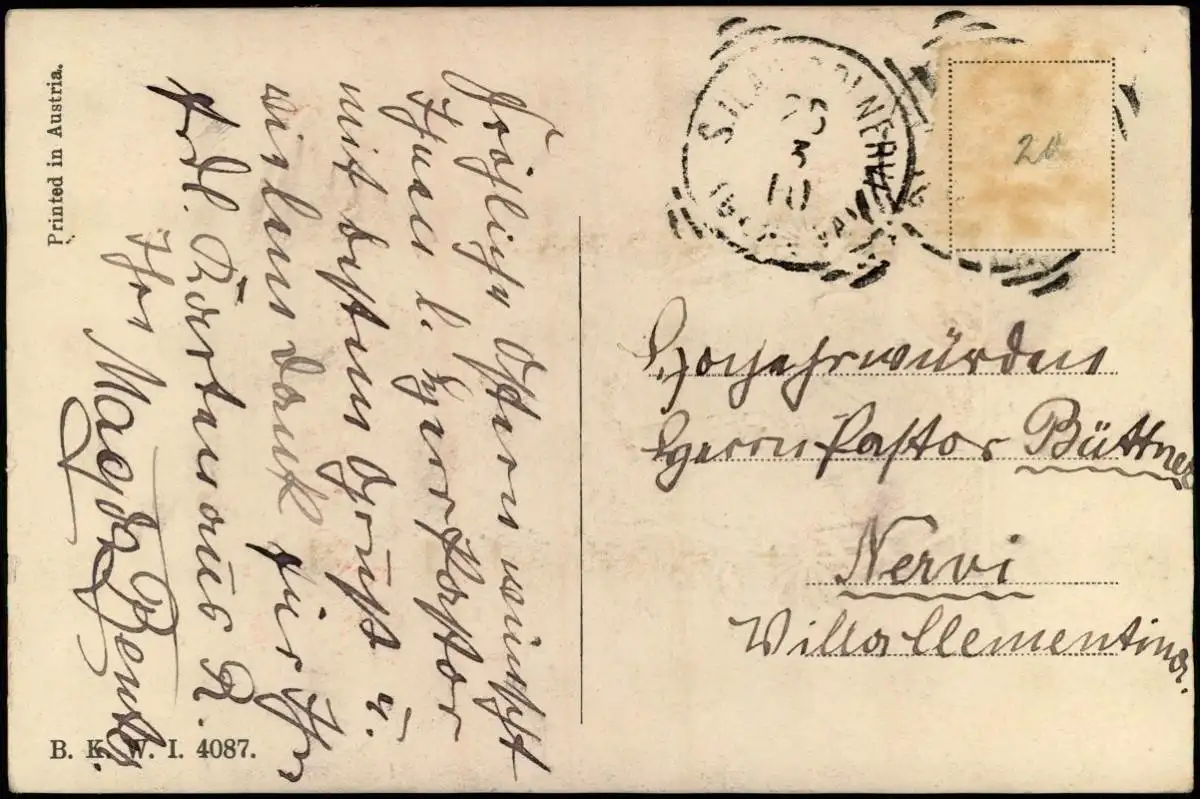 Printed in Austria.
Fröhliche Ostern wünscht
Ihnen l. Herr Pastor
mit besten Grüße u.
vielem Dank für Ihr
frdl. Karte aus R.
Ihre Magda
B. K. W. I. 4087.
23
3
10
20
Hochehrwürden
Herrn Pastor Büttner
Nervi
Villa Clementina.